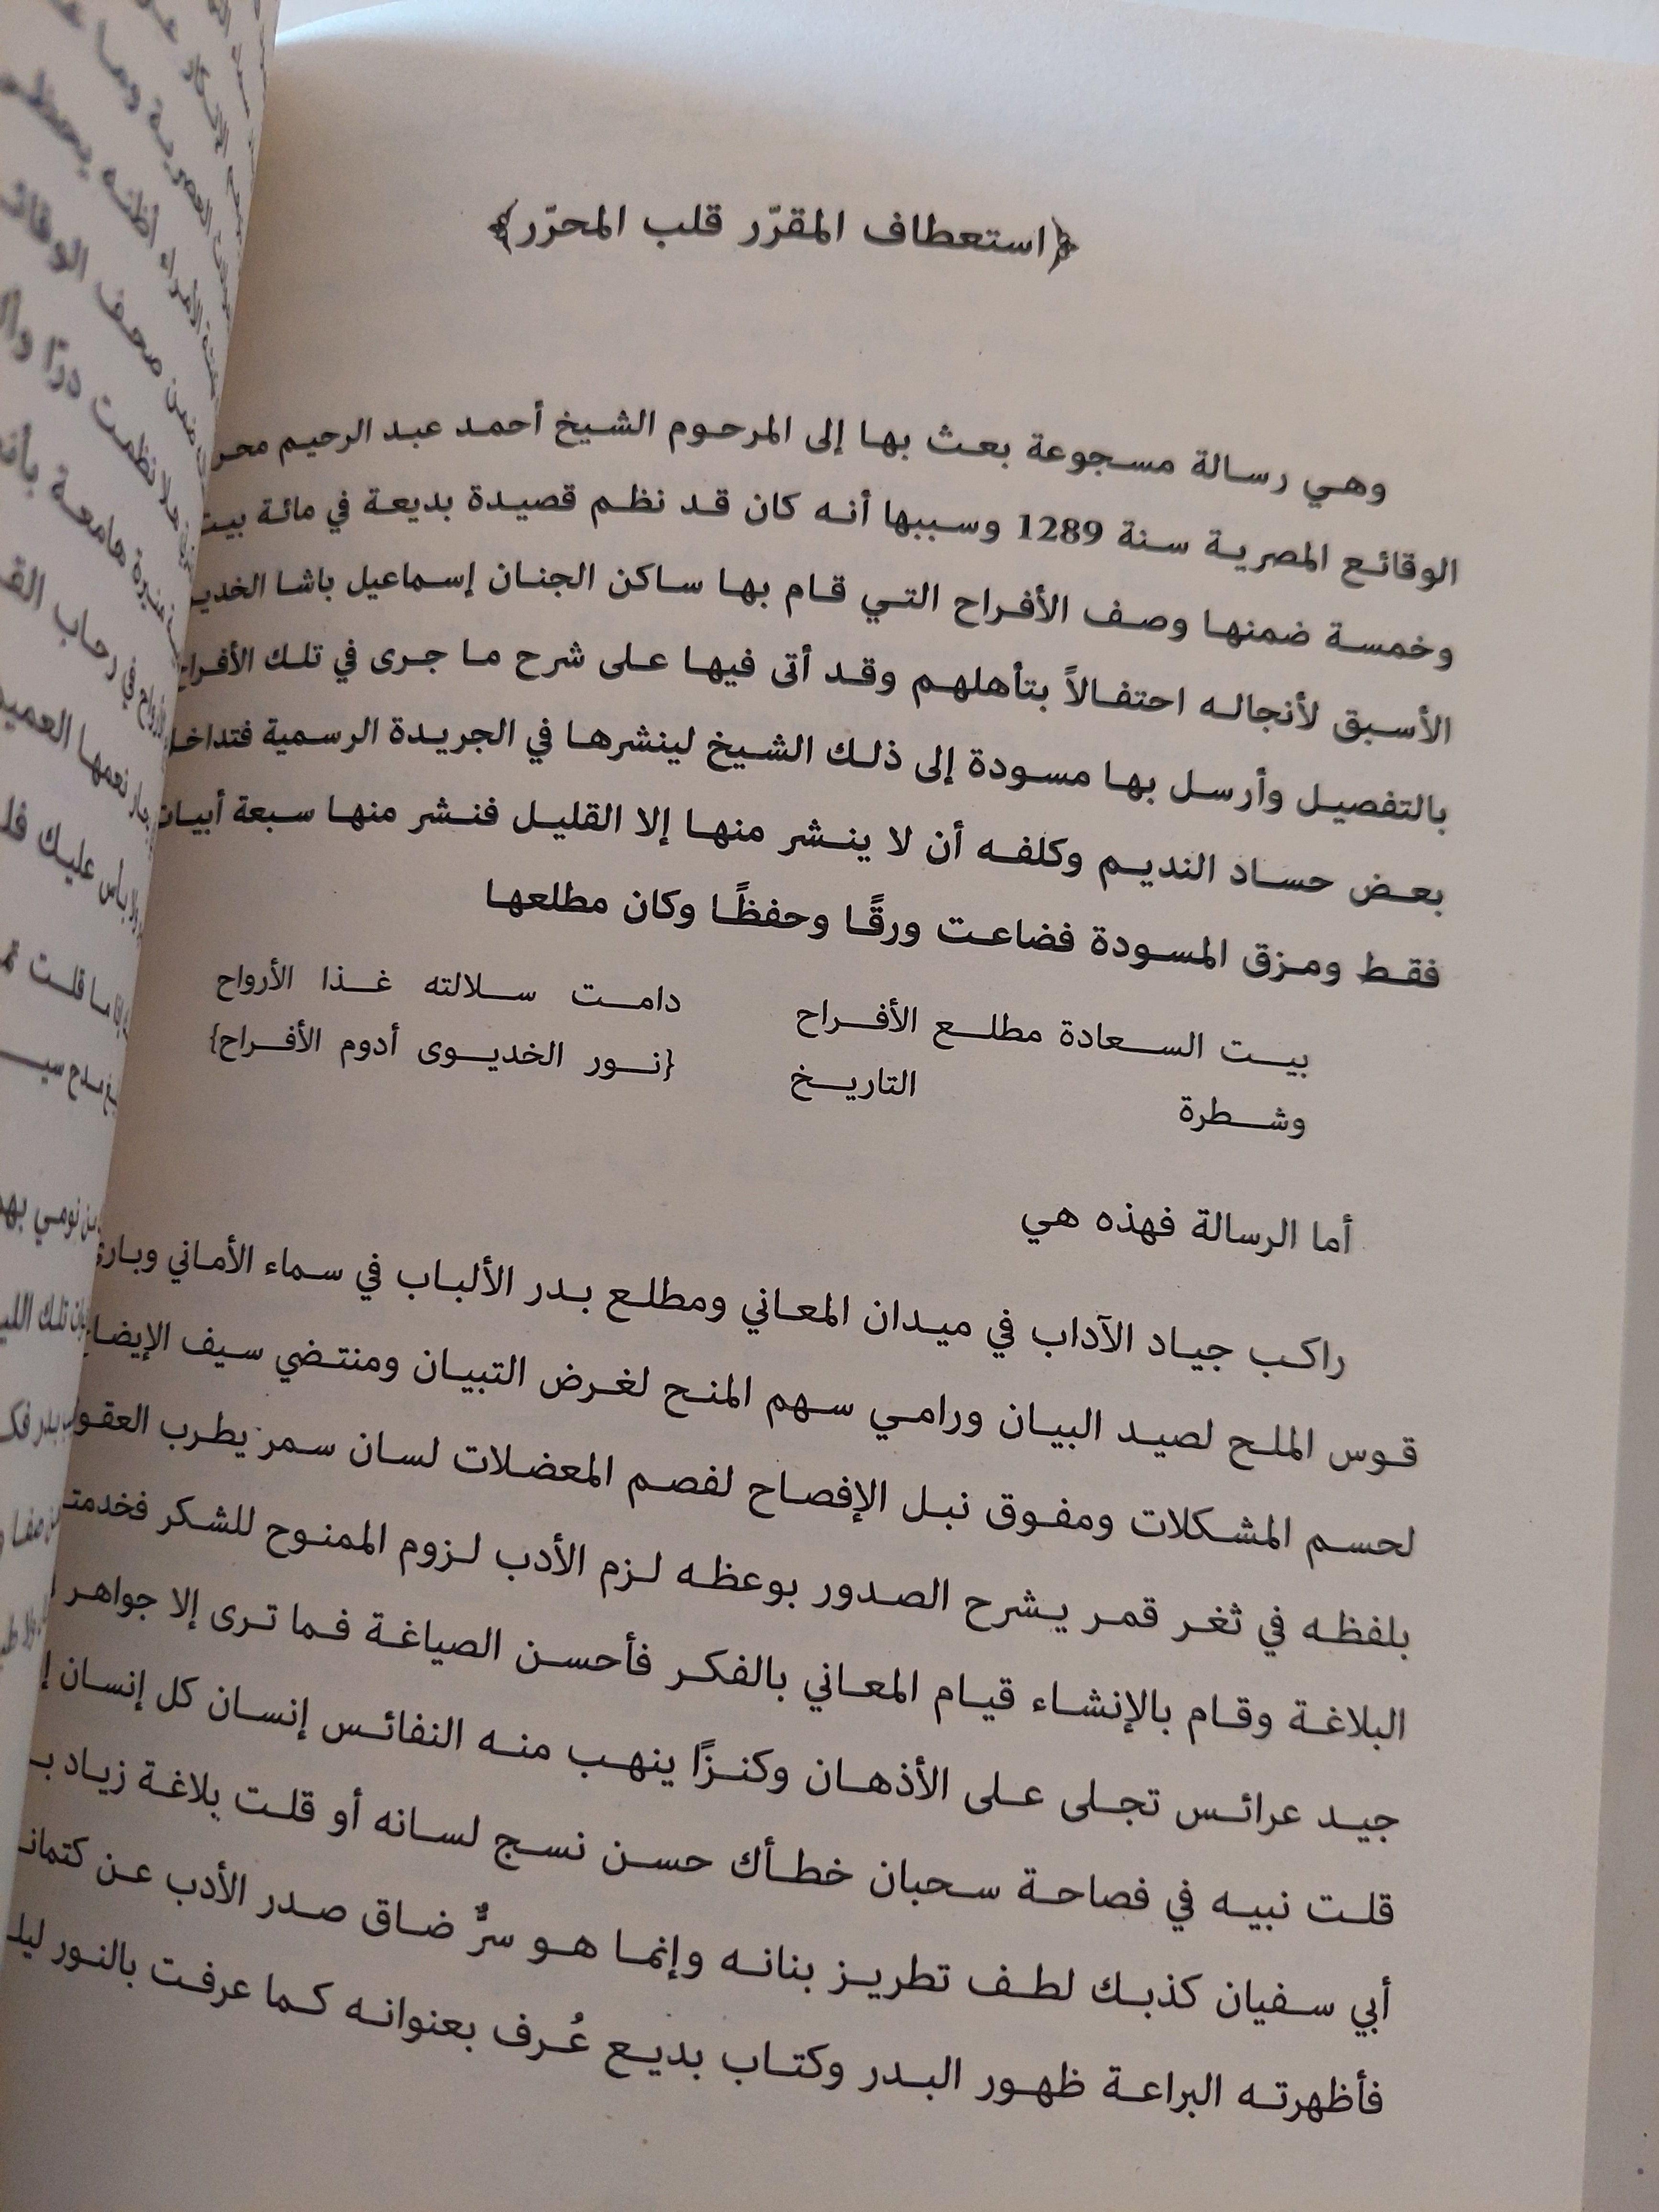 ﴿استعطاف المقرّر قلب المحرّر﴾
وهي رسالة مسجوعة بعث بها إلى المرحوم الشيخ أحمد عبد الرحيم
الوقائع المصرية سنة 1289 وسببها أنه كان قد نظم قصيدة بديعة في مائة بيت
وخمسة ضمنها وصف الأفراح التي قام بها ساكن الجنان إسماعيل باشا
الأسبق لأنجاله احتفالاً بتأهلهم وقد أتى فيها على شرح ما جرى في تلك الأفراح
بالتفصيل وأرسل بها مسودة إلى ذلك الشيخ لينشرها في الجريدة الرسمية فتداخل
بعض حساد النديم وكلفه أن لا ينشر منها إلا القليل فنشر منها سبعة أبيات
فقط ومزق المسودة فضاعت ورقًا وحفظًا وكان مطلعها
بيت السعادة مطلع الأفراح دامت سلالته غذا الأرواح
وشطرة التاريخ {نور الخديوى أدوم الأفراح}
أما الرسالة فهذه هي
راكب جياد الآداب في ميدان المعاني ومطلع بدر الألباب في سماء الأماني
قوس الملح لصيد البيان ورامي سهم المنح لغرض التبيان ومنتضي سيف
لحسم المشكلات ومفوق نبل الإفصاح لفصم المعضلات لسان سمر يطرب العقول
بلفظه في ثغر قمر يشرح الصدور بوعظه لزم الأدب لزوم الممنوح للشكر
البلاغة وقام بالإنشاء قيام المعاني بالفكر فأحسن الصياغة فما ترى إلا جواهر
جيد عرائس تجلى على الأذهان وكنزًا ينهب منه النفائس إنسان كل إنسان
قلت نبيه في فصاحة سحبان خطأك حسن نسج لسانه أو قلت بلاغة زياد
أبي سفيان كذبك لطف تطريز بنانه وإنما هو سرٌّ ضاق صدر الأدب عن
فأظهرته البراعة ظهور البدر وكتاب بديع عُرف بعنوانه كما عرفت بالنور